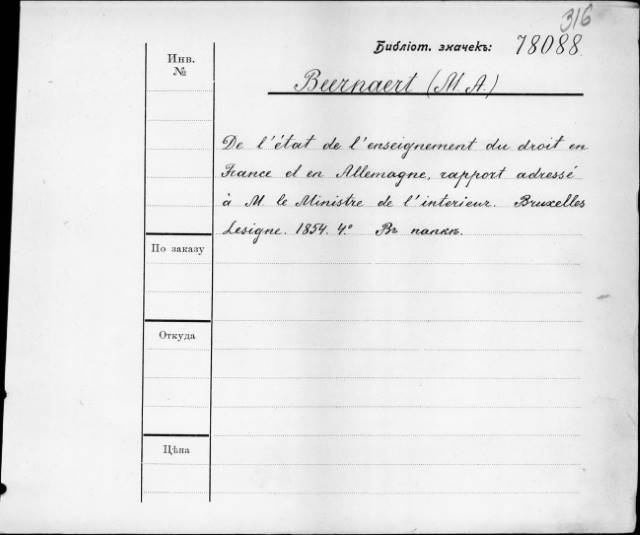 316
Библіот. значекъ: 78088.
Инв.
№
Beernaert (M. A.)
De l'état de l'enseignement du droit en
France et en Allemagne, rapport adressé
à M le Ministre de l'interieur. Bruxelles
Lesigne. 1854. 4.° Въ папкѣ.
По заказу
Откуда
Цѣна